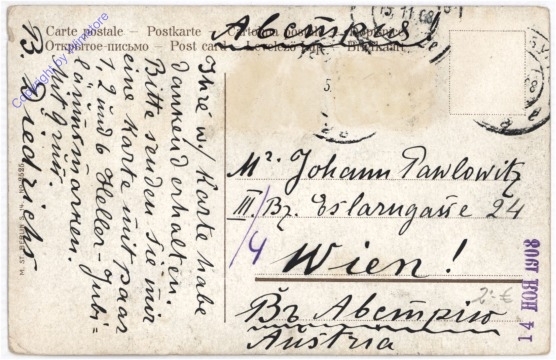 Carte postale – Postkarte – Cartolina postale –
Открытое письмо – Post card – Levelező-lap – Briefkaart
Австрия
Copyright by
13.11.08
Ihre w/ Karte habe
dankend erhalten.
Bitte senden Sie mir
eine Karte mit paar
1, 2 und 6 Heller-Jubi=
läumsmarken.
Mit Gruss.
B. Diedrichs
M. ST. BERLIN S.
Mr. Johann Pawlowitz
III. Bz. Eslarngasse 24
/4
Wien!
Въ Австрiю
Austria
2.- €
14 НОЯ 1908